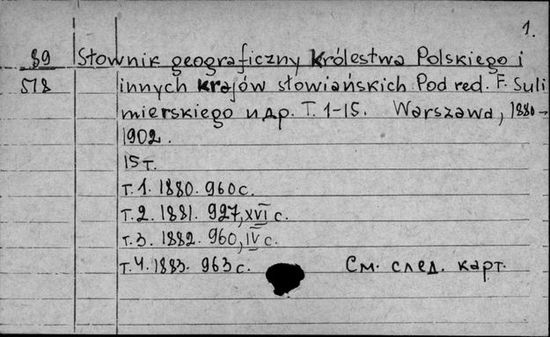 1.
89 Słownik geograficzny Królestwa Polskiego i
518 innych krajów słowiańskich Pod red. F. Suli
mierskiego и др. T. 1-15. Warszawa, 1880-
1902.
15 т.
т. 1. 1880. 960 с.
т. 2. 1881. 927, XVI с.
т. 3. 1882. 960, IV с.
т. 4. 1883. 963 с. См. след. карт.